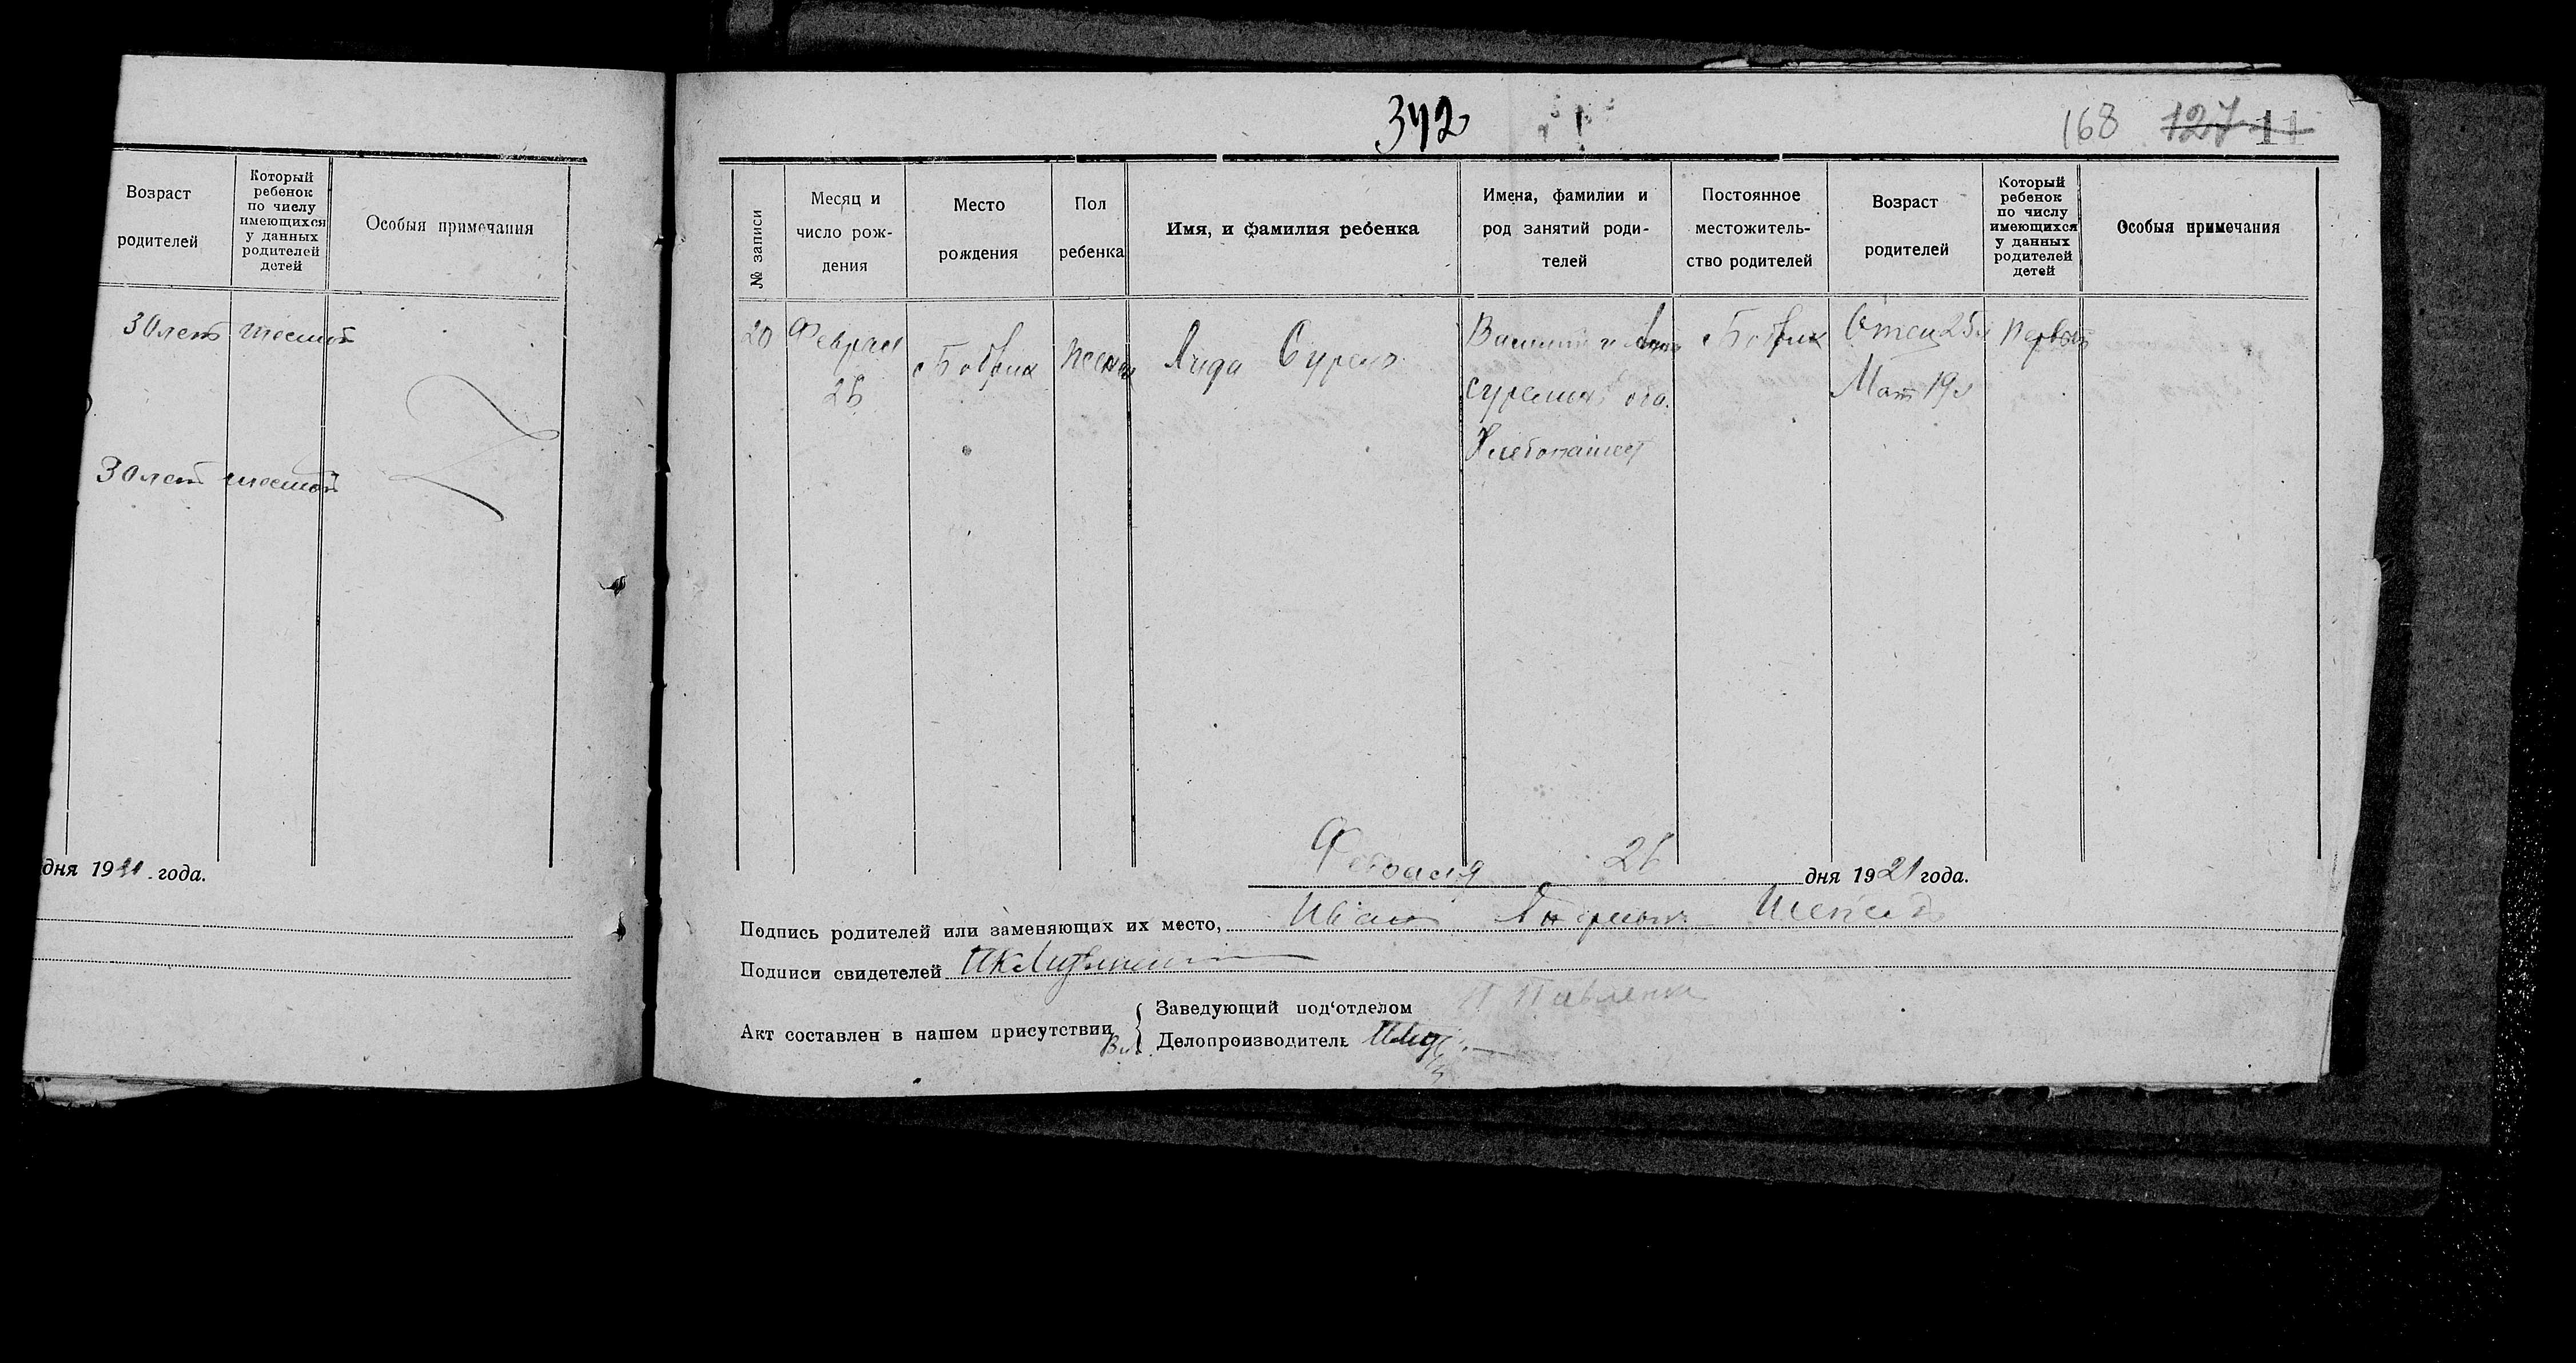 Возраст
родителей
Который
ребенок
по числу
имеющихся
у данных
родителей
детей
Особыя примечания
30 лет шестой
30 лет шестой
дня 1921 года.
342
168 127 11
№ записи
Месяц и
число рож-
дения
Место
рождения
Пол
ребенка
Имя, и фамилия ребенка
Имена, фамилии и
род занятий роди-
телей
Постоянное
местожитель-
ство родителей
Возраст
родителей
Который
ребенок
по числу
имеющихся
у данных
родителей
детей
Особыя примечания
20
Феврал
26
с Бобрик
женск
Лида
Василий и Анна
оба
Хлебопашец
с Бобрик
Отец 25 л
Мать 19 л
первый
Февраля 26 дня 1921 года.
Подпись родителей или заменяющих их место, Иван
Подписи свидетелей
Акт составлен в нашем присутствии
Заведующий под‘отделом П Павленко
Делопроизводитель